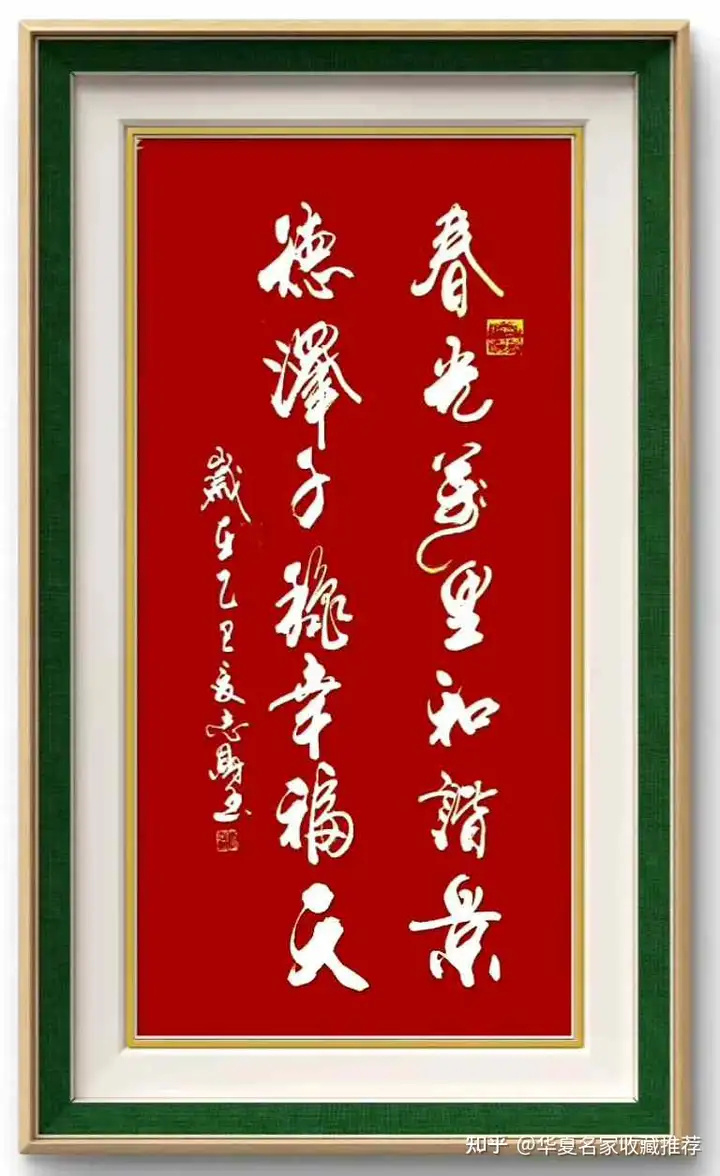 春光萬里和諧景
德澤千秋幸福天
歲在乙巳夏志財
知乎 @华夏名家收藏推荐